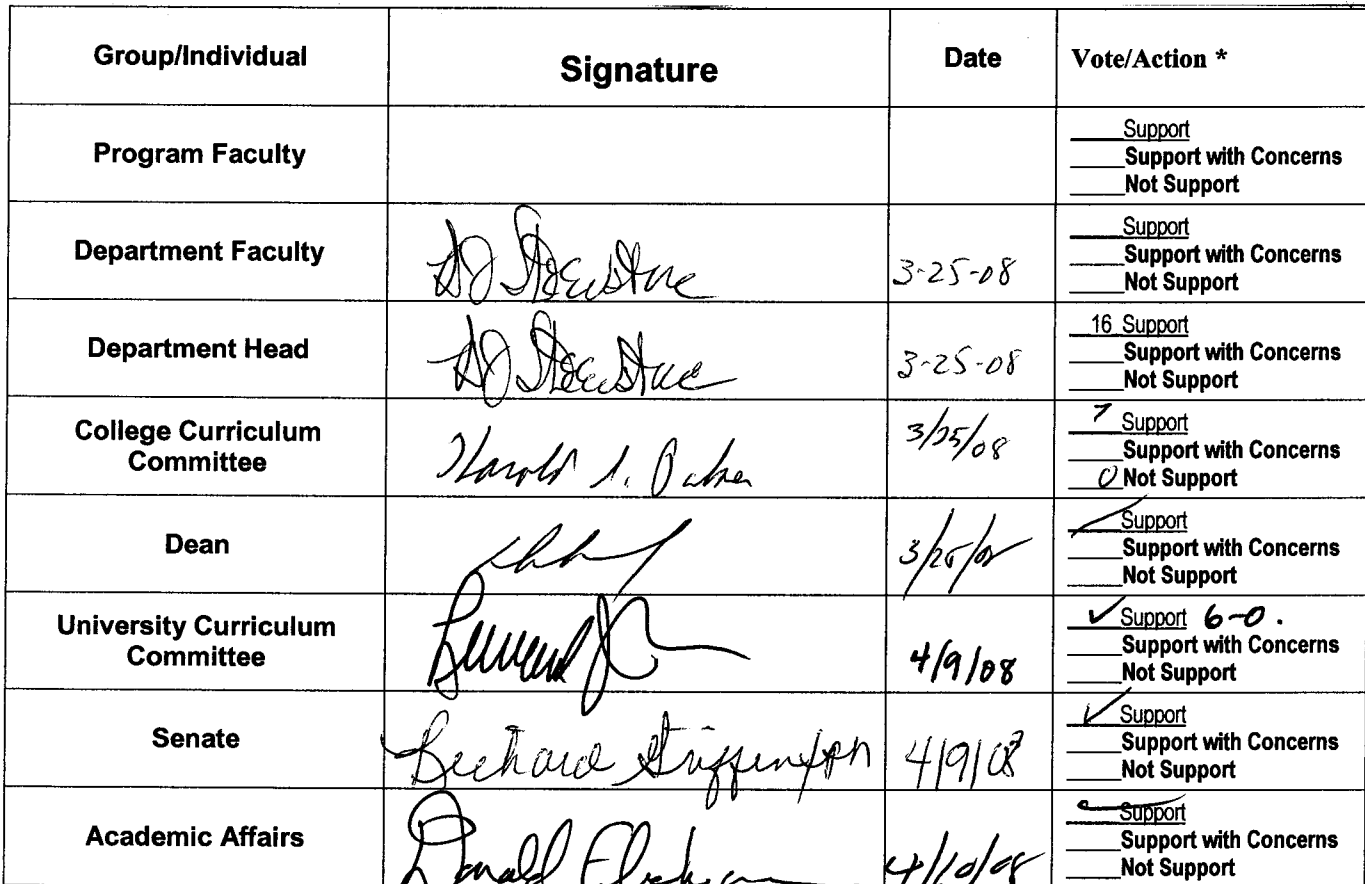 Group/Individual Signature Date Vote/Action *
Program Faculty
____Support
____Support with Concerns
____Not Support
Department Faculty 3-25-08
____Support
____Support with Concerns
____Not Support
Department Head 3-25-08
16 Support
____Support with Concerns
____Not Support
College Curriculum
Committee
Harold 3/25/08
7 Support
____Support with Concerns
0 Not Support
Dean 3/25/08
✓ Support
____Support with Concerns
____Not Support
University Curriculum
Committee
4/9/08
✓ Support 6-0.
____Support with Concerns
____Not Support
Senate Richard 4/9/08
✓ Support
____Support with Concerns
____Not Support
Academic Affairs Donald 4/10/08
Support
____Support with Concerns
____Not Support